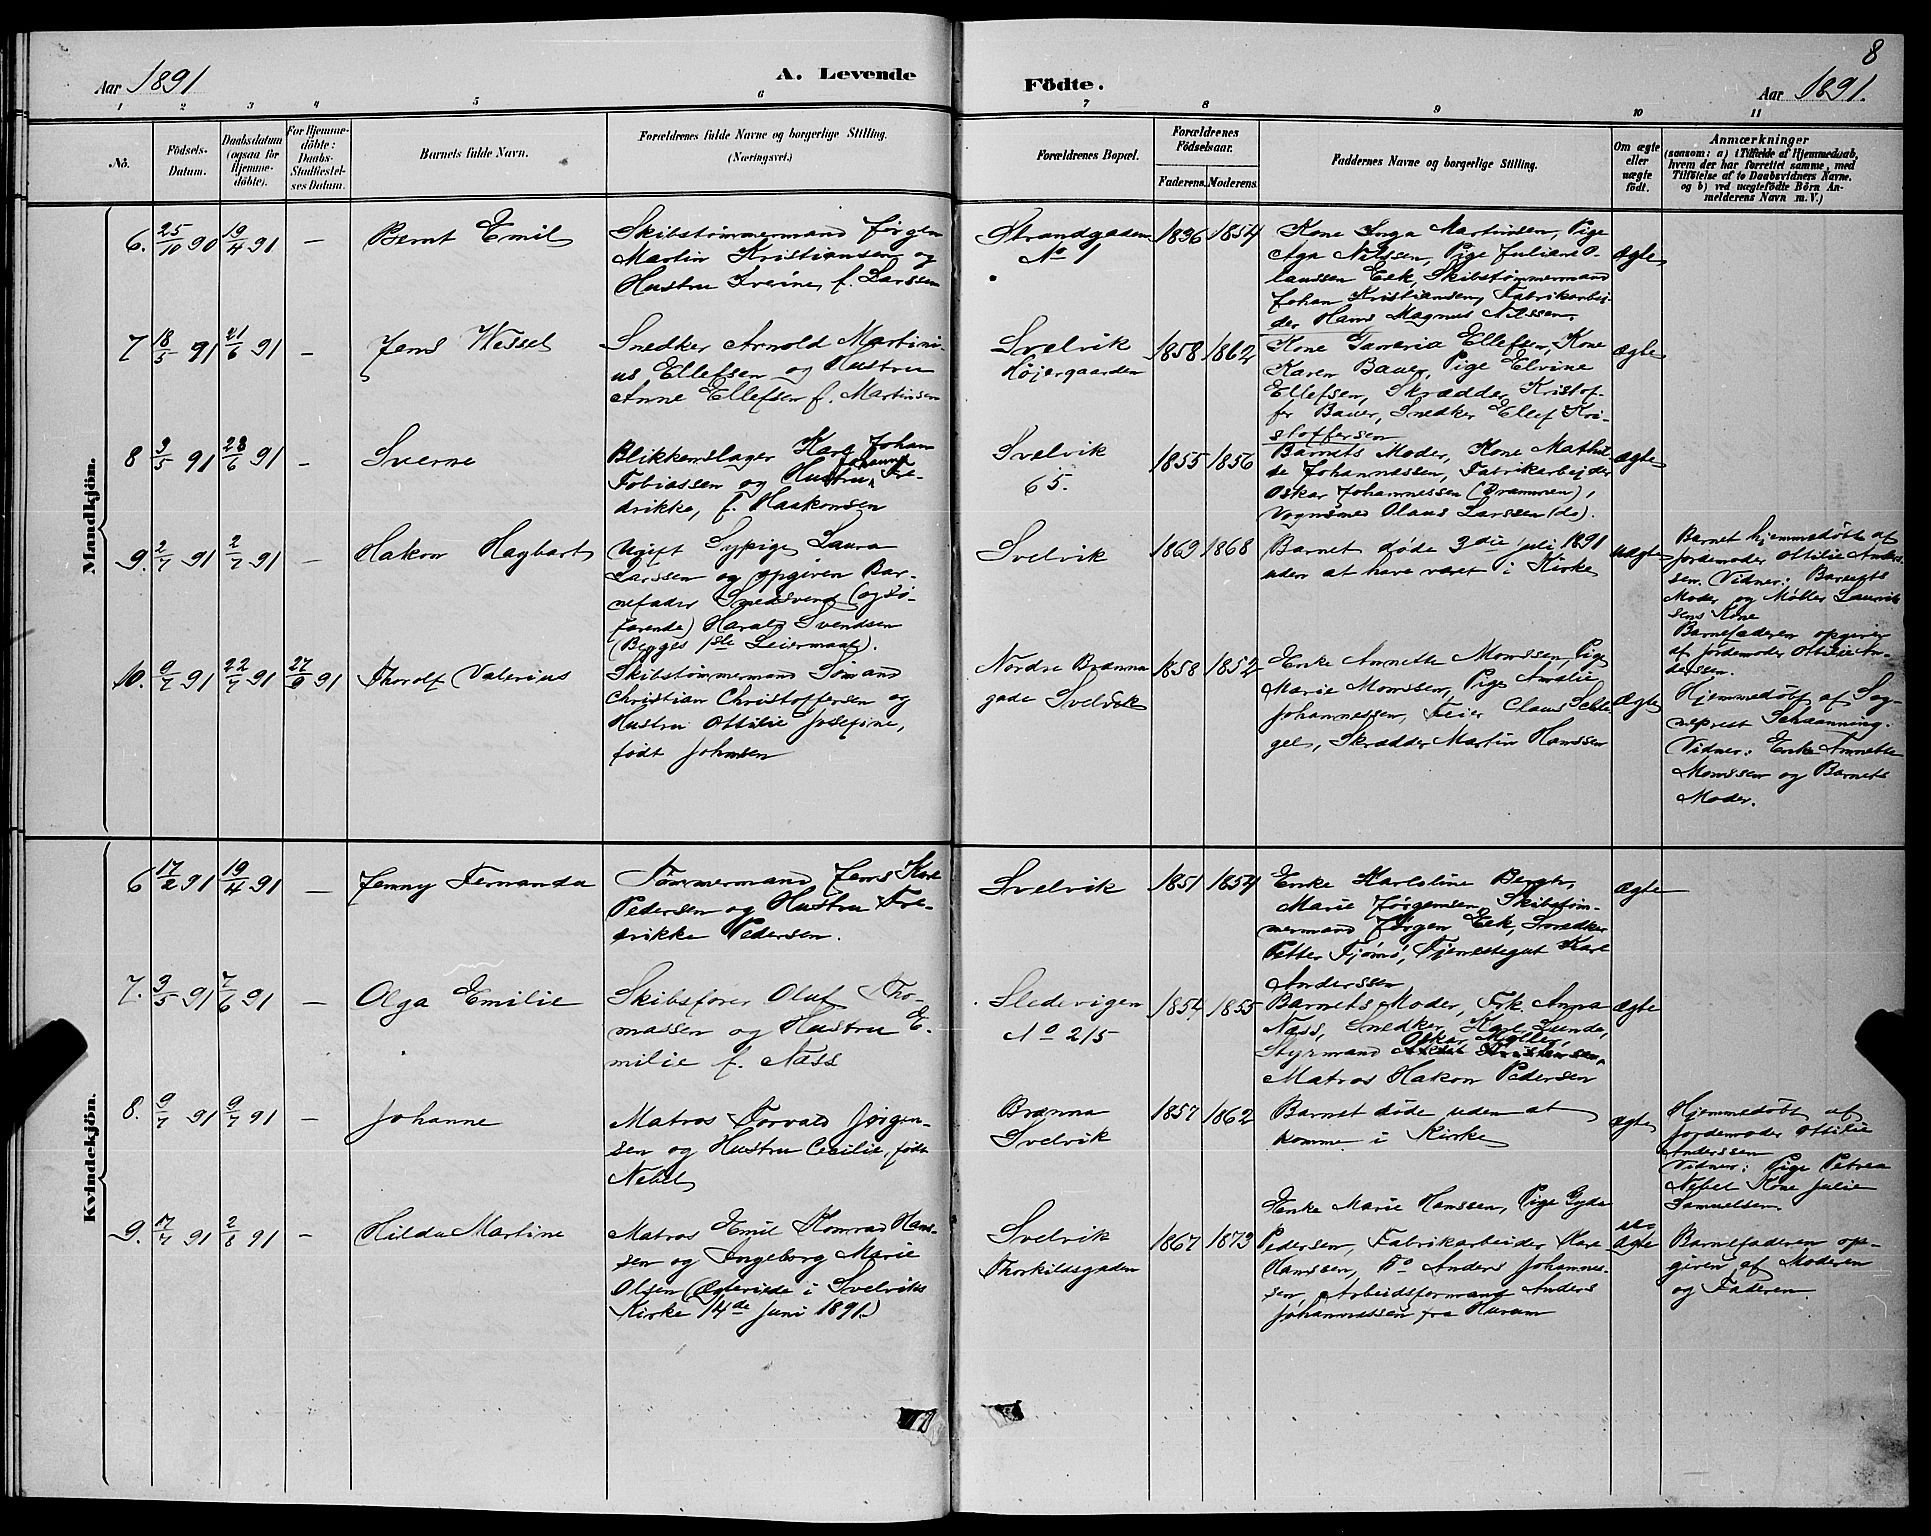 8
Aar 1891
A. Levende
Födte.
Aar 1891.
1 2 3 4 5 6 7 8 9 10 11
No.
Födsels-
Datum.
Daabsdatum
(ogsaa for
Hjemme-
döbte).
For Hjemme-
döbte:
Daabs-
Stadfæstel-
ses Datum.
Barnets fulde Navn.
Forældrenes fulde Navne og borgerlige Stilling.
(Næringsvei.)
Forældrenes Bopæl.
Forældrenes
Födselsaar.
Faderens. Moderens.
Faddernes Navne og borgerlige Stilling.
Om ægte
eller
uægte
födt.
Anmærkninger
(saasom: a) i Tilfælde af Hjemmedaab,
hvem der har forrettet samme, med
Tilföielse af to Daabsvidners Navne,
og b) ved uægtefödte Börn An-
melderens Navn m. V.)
Mandkjön.
6. 25/10 90 19/4 91 —
Bernt Emil
Skibstømmermand Jørgen
Martin Kristiansen og
Hustru Iverine, f. Larssen
Strandgaden
No 1
1836 1854
Kone Inga Martinsen, Pige
Aga Nilssen, Pige Juliane O-
laussen Eek, Skibstømmermand
Johan Kristiansen, Fabrikarbei-
der Hans Magnus Nilssen.
ægte
7 18/5 91 21/6 91 —
Jens Wessel
Snedker Arnold Martini-
us Ellefsen og Hustru
Anne Ellefsen f. Martinsen
Svelvik
Højergaarden
1858 1862
Kone Ellefsen, Kone
Karen Bauer, Pige Elvine
Ellefsen, Skrædder Kristof-
fer Bauer, Snedker Ellef Kri-
stoffersen
ægte
8 3/5 91 28/6 91 —
Sverne
Blikkenslager Karl Johan
Tobiassen og Hustru Johanne Fre-
drikke, f. Haakonsen
Svelvik
65.
1855 1856
Barnets Moder, Kone Mathil-
de Johannessen, Fabrikarbejder
Oskar Johannessen (Drammen),
Vognsmed Olaus Larssen (do).
ægte
9. 2/7 91 2/7 91 —
Hakon Hagbart
Ugift Sypige Laura
Larssen og opgiven Bar-
nefader Smedsvend (og sø-
farende) Harald Svendsen
(Begges 1ste Leiermaal).
Svelvik
1869 1868
Barnet døde 3die juli 1891
uden at have været i Kirke
uægte
Barnet hjemmedøbt af
Jordemoder Ottilie Anders-
sen. Vidner: Barnets
Moder og Møller Laurit-
sens Kone
Barnefaderen opgiven
af Jordemoder Ottilie An-
dersen.
10. 9/7 91 22/7 91 27/9 91
Thorolf Valerius
Skibstømmermand Sømand
Christian Christoffersen og
Hustru Ottilie Josefine,
født Johnsen
Nordre Brænna
gade Svelvik
1858 1852
Enke Annette Monssen, Pige
Marie Monssen, Pige Amalie
Johannessen, Feier Claus Schle
gel, Skrædder Martin Hanssen
ægte
Hjemmedøbt af Sog-
neprest Schaanning.
Vidner: Enke Annette
Monssen og Barnets
Moder.
Kvindekjön.
6 17/2 91 19/4 91 —
Jenny Fernanda
Tømmermand Jens Karl
Pedersen og Hustru Fre-
drikke Pedersen.
Svelvik
1851 1854
Enke Karoline Bergh,
Marie Jørgensen, Skibstøm-
mermand Jørgen Eek, Snedker
Petter Fjøms, Tjenestegut Karl
Anderssen
ægte
7. 3/5 91 7/6 91 —
Olga Emilie
Skibsfører Oluf Tho-
massen og Hustru E-
milie f. Næss
Sledevigen
No 215
1854 1855
Barnets Moder, Frk. Anna
Næss, Snedker Karl Lunde,
Oskar Møller,
Styrmand Kristensen,
Matros Hakon Pedersen
ægte
8. 9/7 91 9/7 91 —
Johanne
Matros Torvald Jørgen-
sen og Hustru Cecilie, født
Nebel
Brænna
Svelvik
1857 1862
Barnet døde uden at
komme i Kirke
ægte
Hjemmedøbt af
Jordemoder Ottilie
Anderssen
Vidner: Pige Petrea
Nebel Kone Julie
Samuelsen
9. 17/7 91 2/8 91 —
Hilda Martine
Matros Emil Konrad Hans-
sen og Ingeborg Marie
Olsen (Ægteviede i Svelviks
Kirke 14de Juni 1891.)
Svelvik
Thorkildsgaden
1867 1873
Enke Marie Hanssen, Pige Gyda
Pedersen, Fabrikarbeider Karl
Hanssen, Do Anders Johannes-
sen, Arbeidsformand Anders
Johannessen fra Hurum
ægte
Barnefaderen op-
given af Moderen
og Faderen